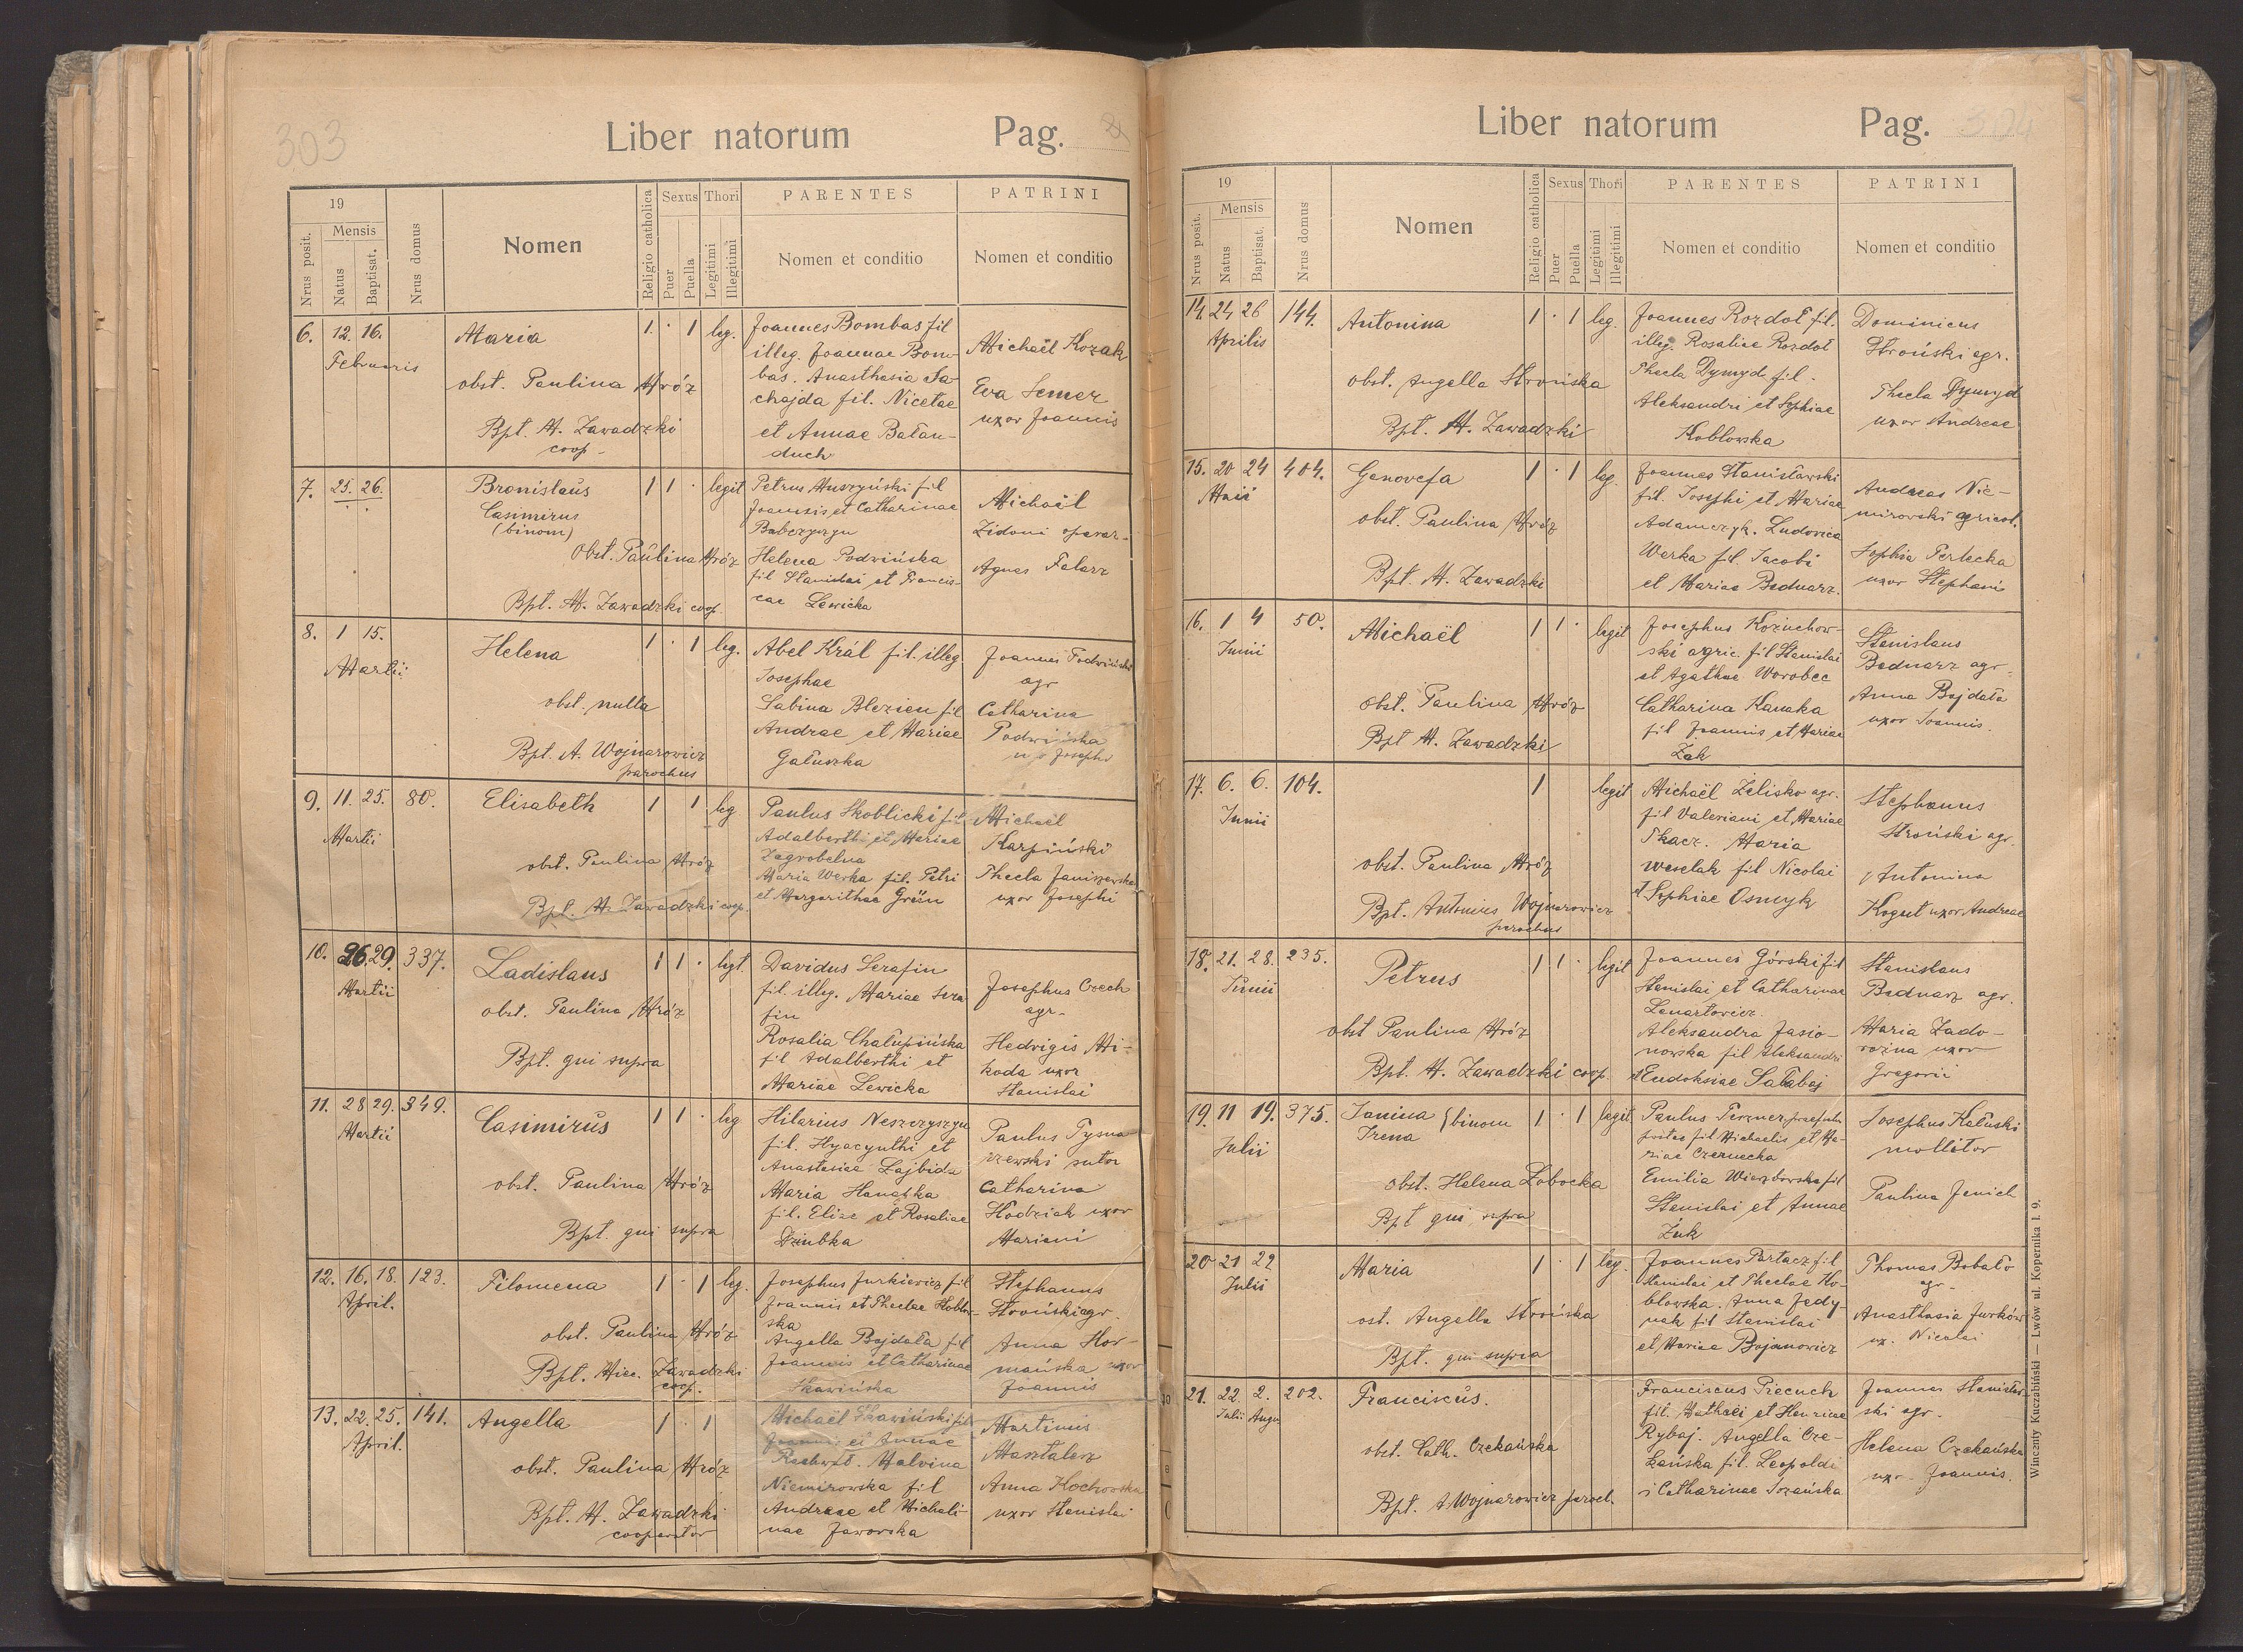 303
Liber natorum Pag.
19
Nrus posit.
Mensis
Natus
Baptisat.
Nrus domus
Nomen
Religio catholica
Sexus
Puer
Puella
Thori
Legitimi
Illegitimi
PARENTES
Nomen et conditio
PATRINI
Nomen et conditio
6. 12. 16.
Februaris
Maria
obst. Paulina Mróz
Bpt. M. Zawadzki
coop.
1. · 1 leg.
Joannes Bombas fil
illeg. Joannae Bom-
bas. Anasthasia Sa-
chajda fil. Nicetae
et Annae Bałan-
duch
Michaël Kozak
Eva Semer
uxor Joannis
7. 25. 26.
Bronislaus
Casimirus
(binom)
Obst. Paulina Mróz
Bpt. M. Zawadzki coop.
1 1 · legit
Petrus Muszyński fil
Joannis et Catharinae
Babczyszyn
Helena Podwińska
fil Stanislai et Francis-
cae Lewicka
Michaël
Zidoni operar.
Agnes Falarz
8. 1 15.
Martii
Helena
obst. nulla
Bpt. A. Wojnarowicz
parochus
1 · 1 leg.
Abel Král fil. illeg.
Josephae
Sabina Blezien fil
Andrae et Mariae
Gałuszka
Joannes Podwiński
agr
Catharina
Podwińska
9. 11. 25. 80.
Martii
Elisabeth
obst. Paulina Mróz
Bpt. M. Zawadzki coop.
1 1 leg
Paulus Skoblicki fil.
Adalberthi et Mariae
Zagrobelna
Maria Werka fil. Petri
et Margarithae Grün
Michaël
Karpiński
Thecla Janiszewska
uxor Josephi
10. 26. 29. 337.
Martii
Ladislaus
obst. Paulina Mróz
Bpt. qui supra
1 1 · legt.
Davidus Serafin
fil. illeg. Mariae Sera
fin
Rosalia Chałupińska
fil Adalberthi et
Mariae Lewicka
Josephus Czech
agr.
Hedvigis Mi-
koda uxor
Stanislai
11. 28 29. 349.
Martii
Casimirus
obst. Paulina Mróz
Bpt. qui supra
1 1 · leg
Hilarius Neszczyszyn
fil. Hyacynthi et
Anastasiae Łajbida
Maria
fil. Eliae et Rosaliae
Dziubka
Paulus Tysna
rzewski sutor
Catharina
Hodziak uxor
Mariani
12. 16. 18. 123.
April.
Filomena
obst. Paulina Mróz
Bpt. Miec. Zawadzki
coop.
1 · 1 leg.
Josephus Jurkiewicz fil
Joannis et Theclae Koblow-
ska
Angella Bojdała fil
Joannis et Catharinae
Skawińska
Stephanus
Stroński agr.
Anna Hor-
mańska uxor
Joannis
13. 22. 25. 141.
April.
Angella
obst. Paulina Mróz
Bpt. M. Zawadzki
cooperator
1 · 1
Michaël Skawiński fil
Joannis et Annae
Malvina
Niemirowska fil
Andreae et Michali-
nae Jaworska
Martinus
Masztalerz
Anna Kochowska
uxor Stanislai
Liber natorum Pag. 304
19
Nrus posit.
Mensis
Natus
Baptisat.
Nrus domus
Nomen
Religio catholica
Sexus
Puer
Puella
Thori
Legitimi
Illegitimi
PARENTES
Nomen et conditio
PATRINI
Nomen et conditio
14. 24 26 144.
Aprilis
Antonina
obst. Angella Strońska
Bpt. M. Zawadzki
1 · 1 leg.
Joannes Rozdoł fil.
illeg. Rosaliae Rozdoł
Thecla Dymyd fil.
Aleksandri et Sophiae
Koblowska
Dominicus
Stroński agr.
Thecla Dymyd
uxor Andreae
15. 20 24 404.
Maii
Genovefa
obst. Paulina Mróz
Bpt. M. Zawadzki
1 · 1 leg.
Joannes Stanisławski
fil. Josephi et Mariae
Adamczyk. Ludovica
Werka fil. Jacobi
et Mariae Bednarz.
Andreas Nie-
mirowski agricol.
Sophia Perlecka
uxor Stephani
16. 1 4 50.
Junii
Michaël
obst. Paulina Mróz
Bpt M. Zawadzki
1 1 · legit
Josephus Kozuchow-
ski agric. fil Stanislai
et Agathae Worobec
Catharina Kanaka
fil Joannis et Mariae
Żak
Stanislaus
Bednarz agr.
Anna Bojdała
uxor Joannis.
17. 6. 6. 104.
Junii
obst. Paulina Mróz
Bpt. Antonius Wojnarowicz
parochus
1 legit
Michaël Żelisko agr.
fil Valeriani et Mariae
Tkacz. Maria
Weselak fil Nicolai
et Sophiae Osmyk
Stephanus
Stroński agr.
Antonina
Kogut uxor Andreae
18. 21. 28. 235.
Junii
Petrus
obst Paulina Mróz
Bpt. M. Zawadzki coop.
1 1 · legit
Joannes Górski fil
Stanislai et Catharinae
Lenartowicz.
Aleksandra Jasio-
nowska fil Aleksandri
et Eudoksiae Sałabaj
Stanislaus
Bednarz agr.
Maria Zado-
rożna uxor
Gregorii
19. 11 19. 375.
Julii
Janina } binom
Irena
obst. Helena Łobocka
Bpt qui supra
1 · 1 legit.
Paulus
fil Michaelis et Ma-
riae Czernecka
Emilia Wierzbowska fil
Stanislai et Annae
Żuk
Josephus Kałuski
mollitor
Paulina Jenich
20 21 22
Julii
Maria
ost. Angella Strońska
Bpt. qui supra
1 · 1 leg.
Joannes Partacz fil
Stanislai et Theclae Ko-
blowska. Anna Jedy-
nak fil Stanislai
et Mariae Bojanowicz
Thomas Bobało
agr.
Anasthasia Jurków
ux. Nicolai
21. 22. 2. 202.
Julii Augu
Franciscus.
obst. Cath. Czekańska
Bpt. A Wojnarowicz paroch.
Franciscus Piecuch
fil. Mathaei et Henricae
Rybaj. Angella Cze-
kańska fil. Leopoldi
i Catharinae Sozańska
Joannes Stanisław-
ski agr.
Helena Czekańska
uxr Joannis.
Winczenty Kuczabiński — Lwów ul. Kopernika l. 9.